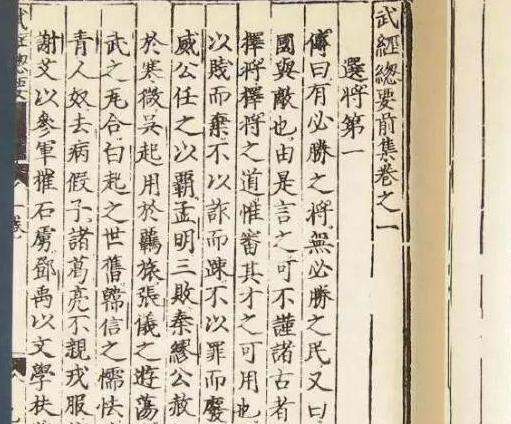 武經總要前集卷之一
選將第一
傳曰有必勝之將無必勝之民又曰
國與敵也由是言之可不謹諸古者
擇將擇將之道惟審其才之可用也
以賤而棄不以詐而踈不以罪而廢
威公任之以霸孟明三敗秦繆公赦
於寒微吳起用於羈旅張儀之遊蕩
武之无合白起之世舊韓信之懦怯
青人奴去病假子諸葛亮不親戎服
謝艾以參軍摧石虜鄧禹以文學扶
武經總要
一卷